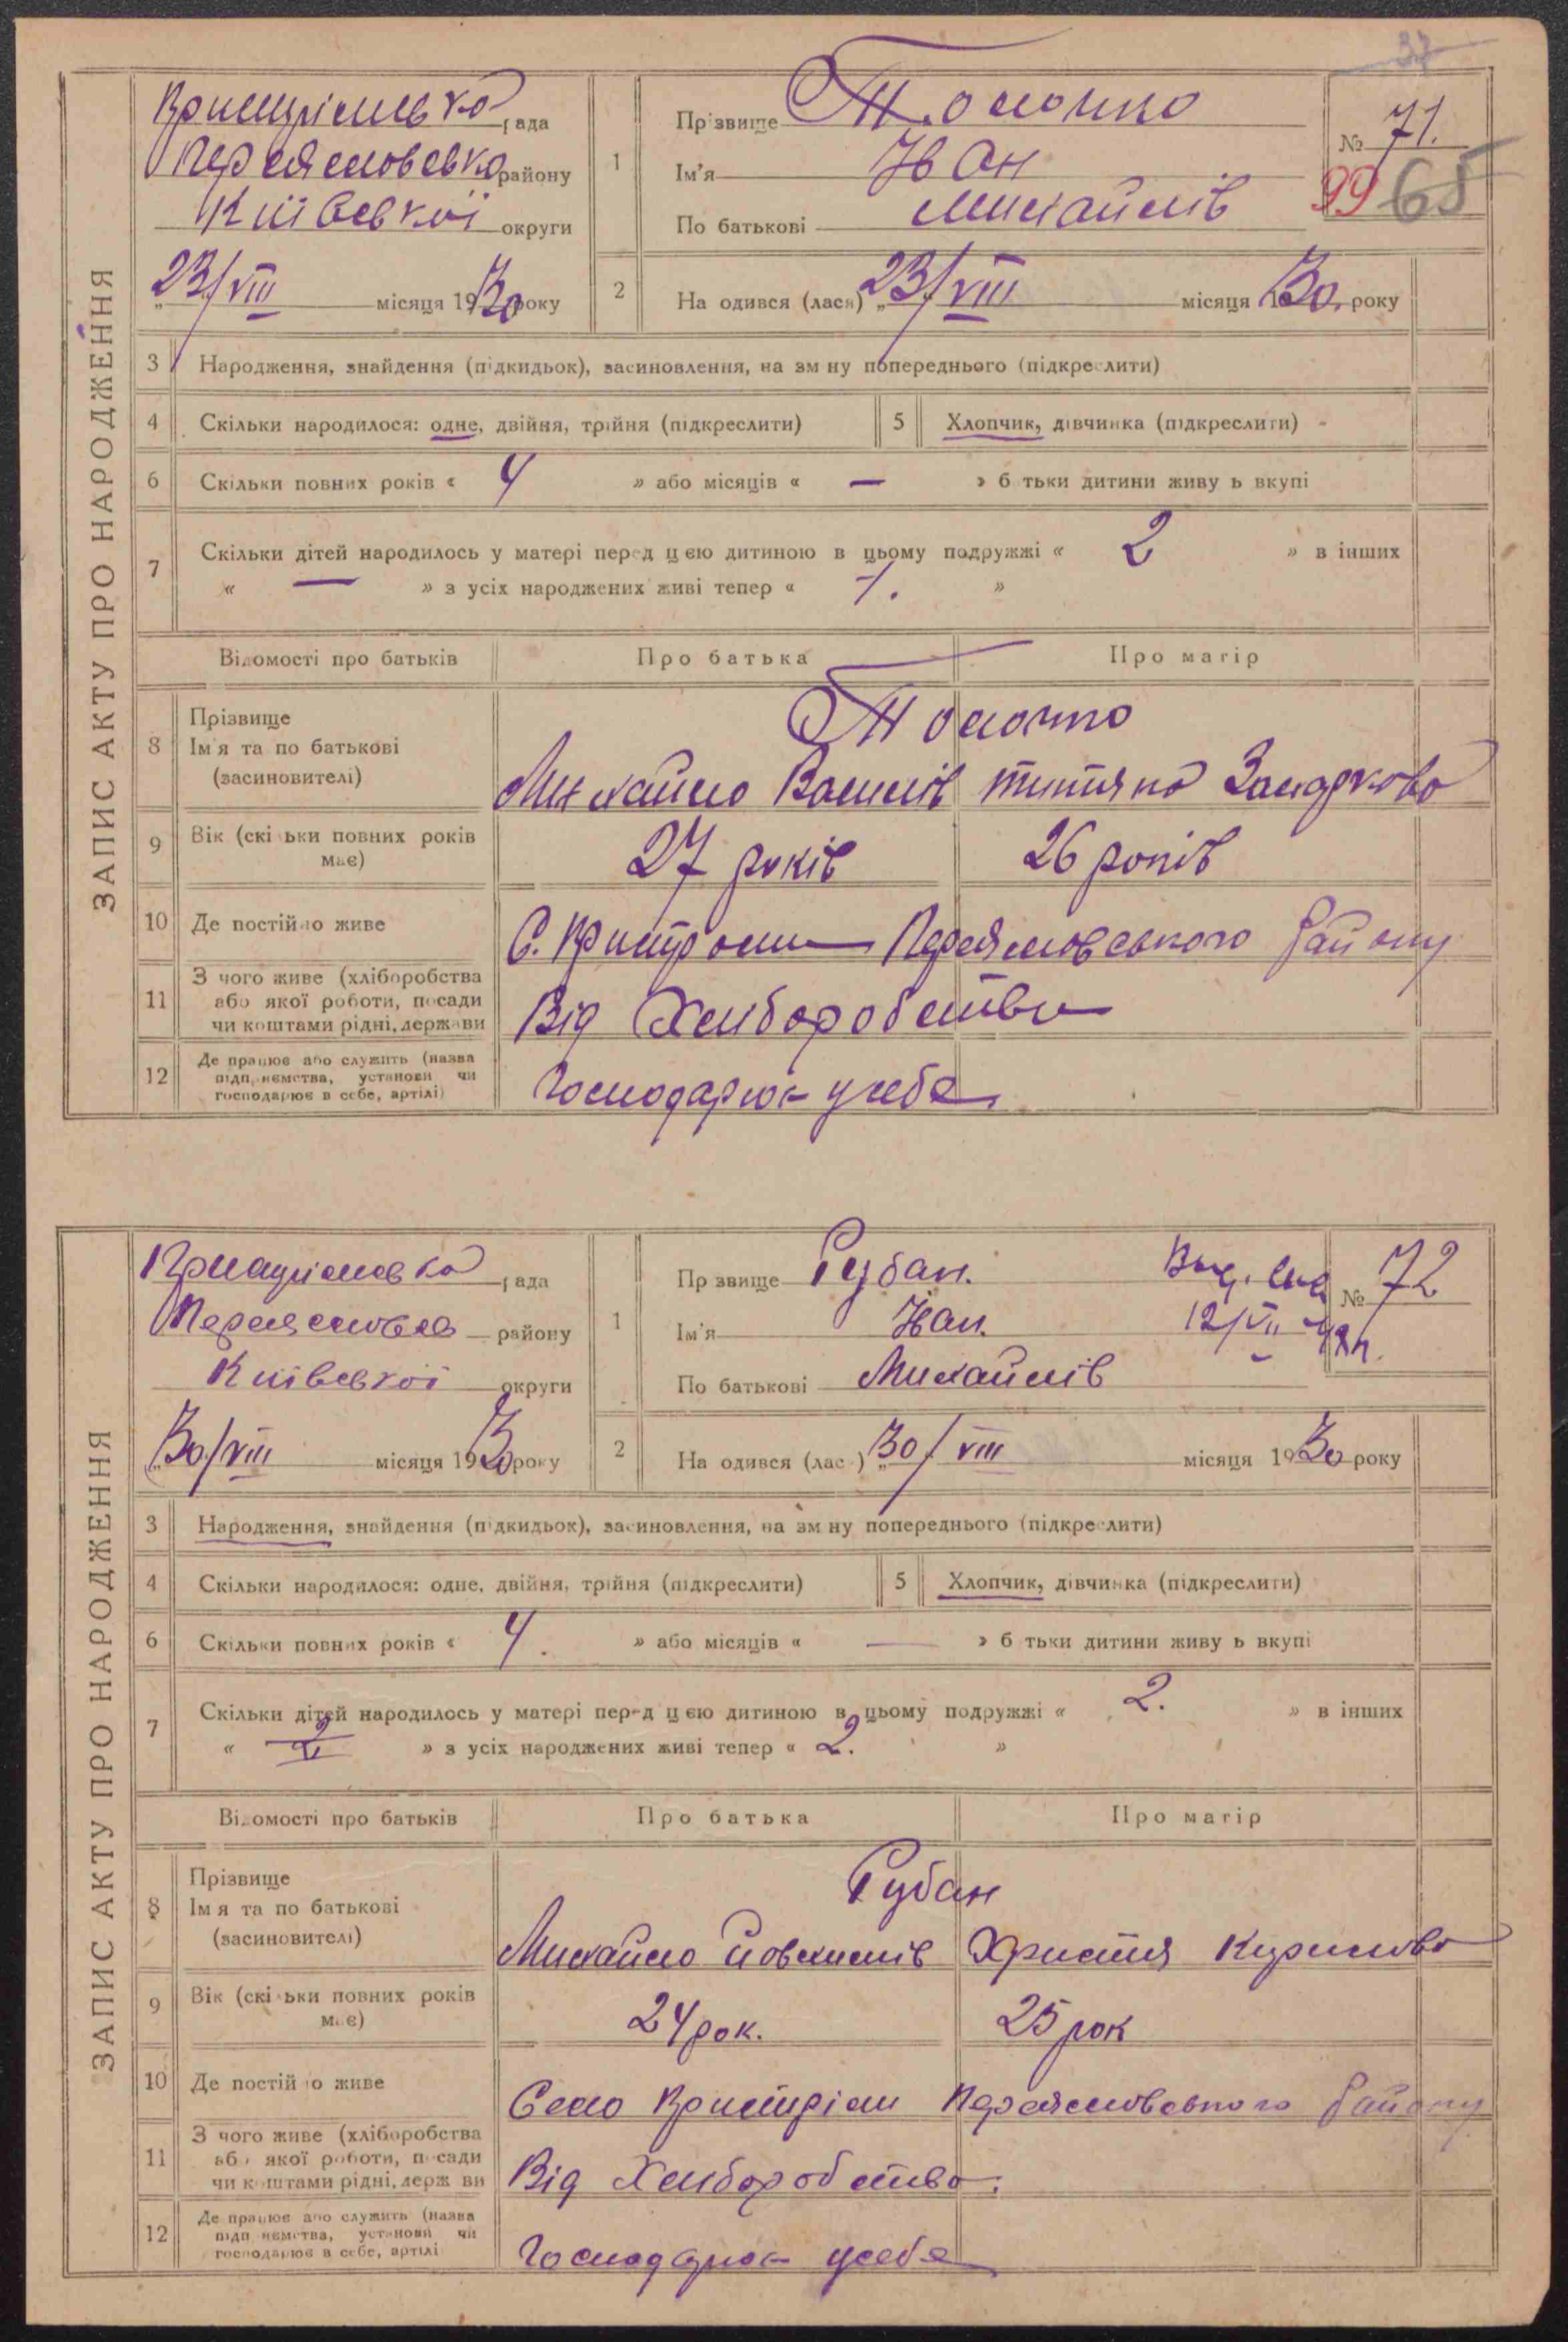 37
ЗАПИС АКТУ ПРО НАРОДЖЕННЯ
рада
району
Київської округи
23/VIII місяця 1930 року
1
Прізвище Толочко
Ім'я Іван
По батькові Михайлів
№ 71.
99 68
2
На одився (лася) „23/VIII місяця 1930. року
3 Народження, знайдення (підкидьок), засиновлення, на зм ну попереднього (підкреслити)
4 Скільки народилося: одне, двійня, трійня (підкреслити) 5 Хлопчик, дівчинка (підкреслити)
6 Скільки повних років « 4 » або місяців « — » б тьки дитини живу ь вкупі
7 Скільки дітей народилось у матері перед цією дитиною в цьому подружжі « 2 » в інших
« — » з усіх народжених живі тепер « 1. »
Відомості про батьків Про батька Про матір
8 Прізвище
Ім'я та по батькові
(засиновителі)
Толочко
Михайло Василів Титяна
9 Вік (скі ьки повних років має)
27 років 26 років
10 Де постійно живе
С. Переяславського району
11 З чого живе (хліборобства
або якої роботи, посади
чи коштами рідні, держави
Від Хліборобства
12 Де працює або служить (назва
підпр ємства, установи чи
господарює в себе, артілі)
Господарює усебе
ЗАПИС АКТУ ПРО НАРОДЖЕННЯ
рада
району
Київської округи
„30/VIII місяця 1930 року
1
Пр звище Рубан.
Ім'я Іван.
По батькові Михайлів
12/VII
№ 72
2
На одився (лас ) „30/VIII місяця 1930 року
3 Народження, знайдення (підкидьок), засиновлення, на зм ну попереднього (підкреслити)
4 Скільки народилося: одне, двійня, трійня (підкреслити) 5 Хлопчик, дівчинка (підкреслити)
6 Скільки повних років « 4. » або місяців « — » б тьки дитини живу ь вкупі
7 Скільки дітей народилось у матері перед цією дитиною в цьому подружжі « 2. » в інших
« » з усіх народжених живі тепер « 2. »
Відомості про батьків Про батька Про матір
8 Прізвище
Ім'я та по батькові
(засиновителі)
Рубан
Михайло Христя Курилова
9 Вік (скі ьки повних років має)
24 рок. 25 рок
10 Де постій о живе
Село Пристром Переяславського району
11 З чого живе (хліборобства
або якої роботи, посади
чи коштами рідні, держ ви
Від Хліборобства.
12 Де працює або служить (назва
підп ємства, установи чи
господарює в себе, артілі
Господарює усебе